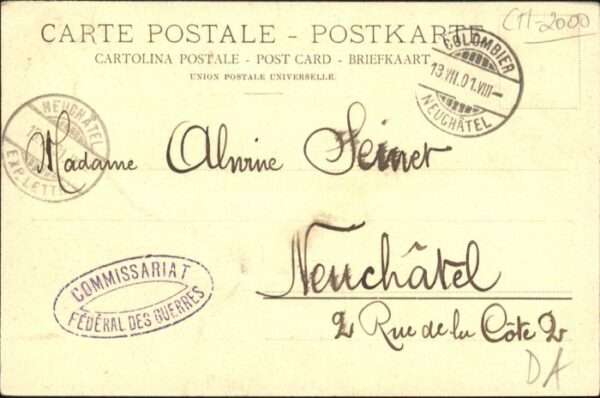 CTT-2000
CARTE POSTALE - POSTKARTE
CARTOLINA POSTALE - POST CARD - BRIEFKAART
UNION POSTALE UNIVERSELLE.
COLOMBIER
13.VII.01.VIII–
NEUCHÂTEL
NEUCHÂTEL
EXP. LETT
Madame Alwine Seinet
Neuchâtel
2 Rue de la Côte 2
COMMISSARIAT
FÉDÉRAL DES GUERRES
DA